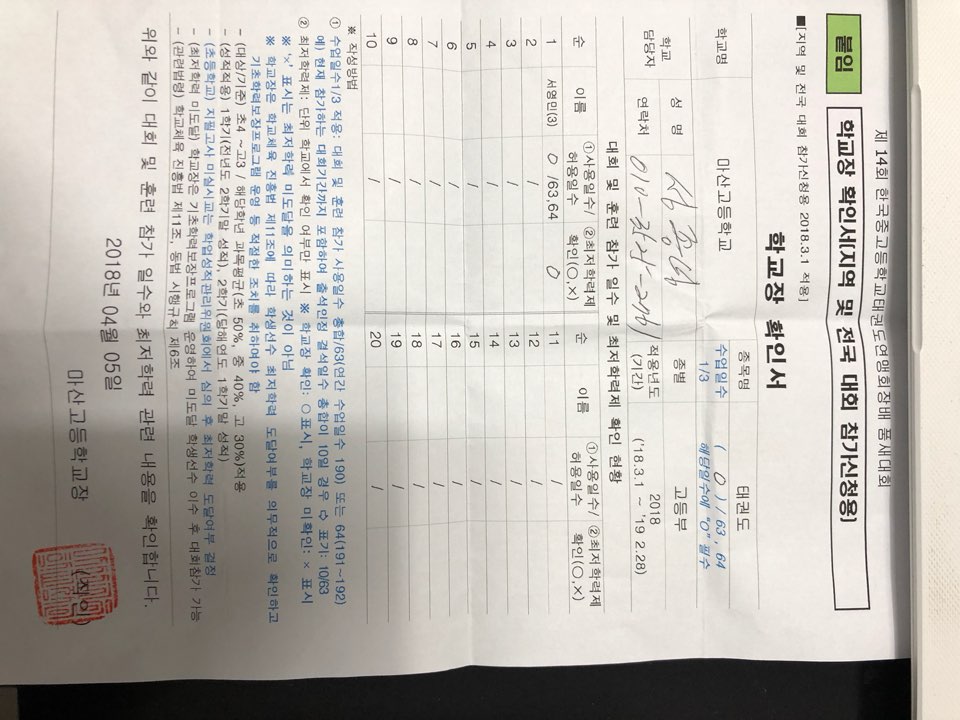 제 14회 한국중고등학교태권도연맹회장배 품새대회
붙임
학교장 확인서(지역 및 전국 대회 참가신청용)
■[지역 및 전국 대회 참가신청용 2018.3.1 적용]
학교장 확인서
학교명 마산고등학교 종목명 태권도
수업일수 1/3 ( 0 ) / 63 , 64
해당일수에 "O" 필수
학교 담당자 성 명 종별 고등부
연락처 적용년도 (기간) 2018 ('18.3.1 ~ '19 2.28)
대회 및 훈련 참가 일수 및 최저학력제 확인 현황
순 이름 ①사용일수/허용일수 ②최저학력제 확인(○,×) 순 이름 ①사용일수/허용일수 ②최저학력제 확인(○,×)
1 서영민(3) 0 /63,64 0 11 /
2 / 12 /
3 / 13 /
4 / 14 /
5 / 15 /
6 / 16 /
7 / 17 /
8 / 18 /
9 / 19 /
10 / 20 /
※ 작성방법
① 수업일수1/3 적용: 대회 및 훈련 참가 사용일수 총합/63(연간 수업일수 190) 또는 64(191~192)
예) 현재 참가하는 대회기간까지 포함하여 출석인정 결석일수 총합이 10일 경우 ⇨ 표기: 10/63
② 최저학력제: 단위 학교에서 확인 여부만 표시 ※ 학교장 확인: ○표시, 학교장 미확인: × 표시
※ '×' 표시는 최저학력 미도달을 의미하는 것이 아님
※ 학교장은 학교체육 진흥법 제11조에 따라 학생선수 최저학력 도달여부를 의무적으로 확인하고
기초학력보장프로그램 운영 등 적절한 조치를 취하여야 함
- (대상/기준) 초4 ~고3 / 해당학년 과목평균(초 50%, 중 40%, 고 30%)적용
- (성적적용) 1학기(전년도 2학기말 성적), 2학기(당해연도 1학기말 성적)
- (초등학교) 지필고사 미실시교는 학업성적관리위원회에서 심의 후 최저학력 도달여부 결정
- (최저학력 미도달) 학교장은 기초학력보장프로그램 운영하여 미도달 학생선수 이수 후 대회참가 가능
- (관련법령) 학교체육 진흥법 제11조, 동법 시행규칙 제6조
위와 같이 대회 및 훈련 참가 일수와 최저학력 관련 내용을 확인합니다.
2018년 04월 05일
마산고등학교장 (직인)